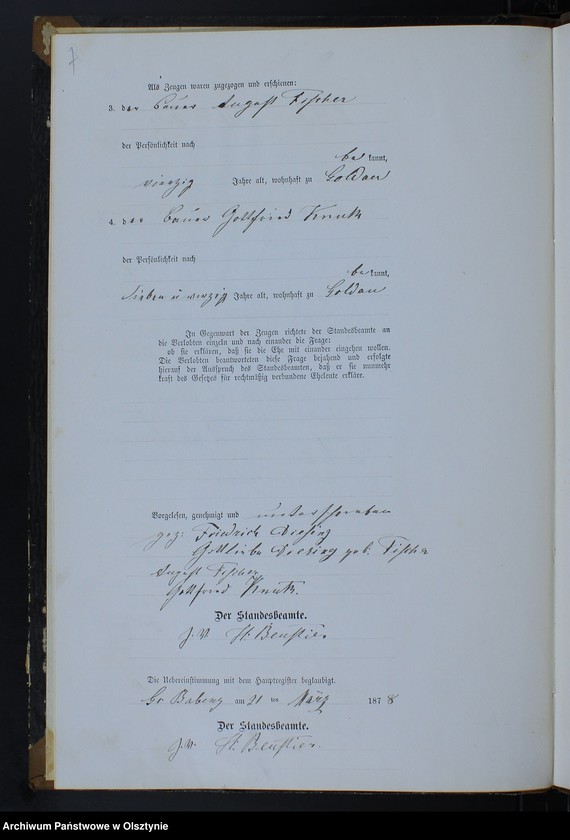 7
Als Zeugen waren zugezogen und erschienen:
3. der Bauer August Fischer
der Persönlichkeit nach
bekannt,
vierzig Jahre alt, wohnhaft zu Goldau
4. der Bauer Gottfried
der Persönlichkeit nach
bekannt,
sieben u vierzig Jahre alt, wohnhaft zu Goldau
In Gegenwart der Zeugen richtete der Standesbeamte an
die Verlobten einzeln und nach einander die Frage:
ob sie erklären, daß sie die Ehe mit einander eingehen wollen.
Die Verlobten beantworteten diese Frage bejahend und erfolgte
hierauf der Ausspruch des Standesbeamten, daß er sie nunmehr
kraft des Gesetzes für rechtmäßig verbundene Eheleute erkläre.
Vorgelesen, genehmigt und unterschrieben
gez: Friedrich Doesing
Gottliebe Doesing geb. Fischer
August Fischer
Gottfried
Der Standesbeamte.
J. V.
Die Uebereinstimmung mit dem Hauptregister beglaubigt.
Gr Babenz am 21 ten März 1878
Der Standesbeamte.
J. V.
Archiwum Państwowe w Olsztynie